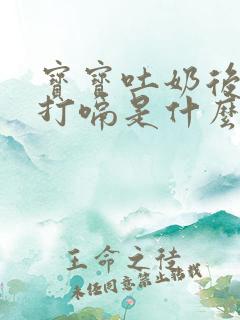 寶寶吐奶後
打嗝是什麼
王命之徒
未經同意禁止轉載